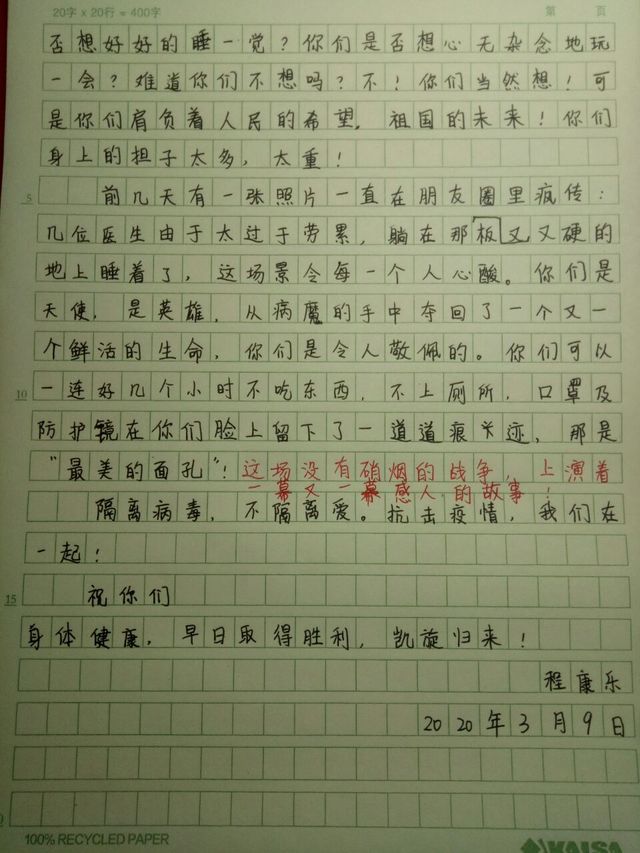 20字 x 20行 = 400字
第 页
否想好好的睡一觉？你们是否想心无杂念地玩
一会？难道你们不想吗？不！你们当然想！可
是你们肩负着人民的希望，祖国的未来！你们
身上的担子太多，太重！
5
前几天有一张照片一直在朋友圈里疯传：
几位医生由于太过于劳累，躺在那板又又硬的
地上睡着了，这场景令每一个人心酸。你们是
天使，是英雄，从病魔的手中夺回了一个又一
个鲜活的生命，你们是令人敬佩的。你们可以
10
一连好几个小时不吃东西，不上厕所，口罩及
防护镜在你们脸上留下了一道道痕迹，那是
“最美的面孔”！这场没有硝烟的战争，上演着
一幕又一幕感人的故事！
隔离病毒，不隔离爱。抗击疫情，我们在
一起！
15
祝你们
身体健康，早日取得胜利，凯旋归来！
程康乐
2020年3月9日
100% RECYCLED PAPER
KAISA